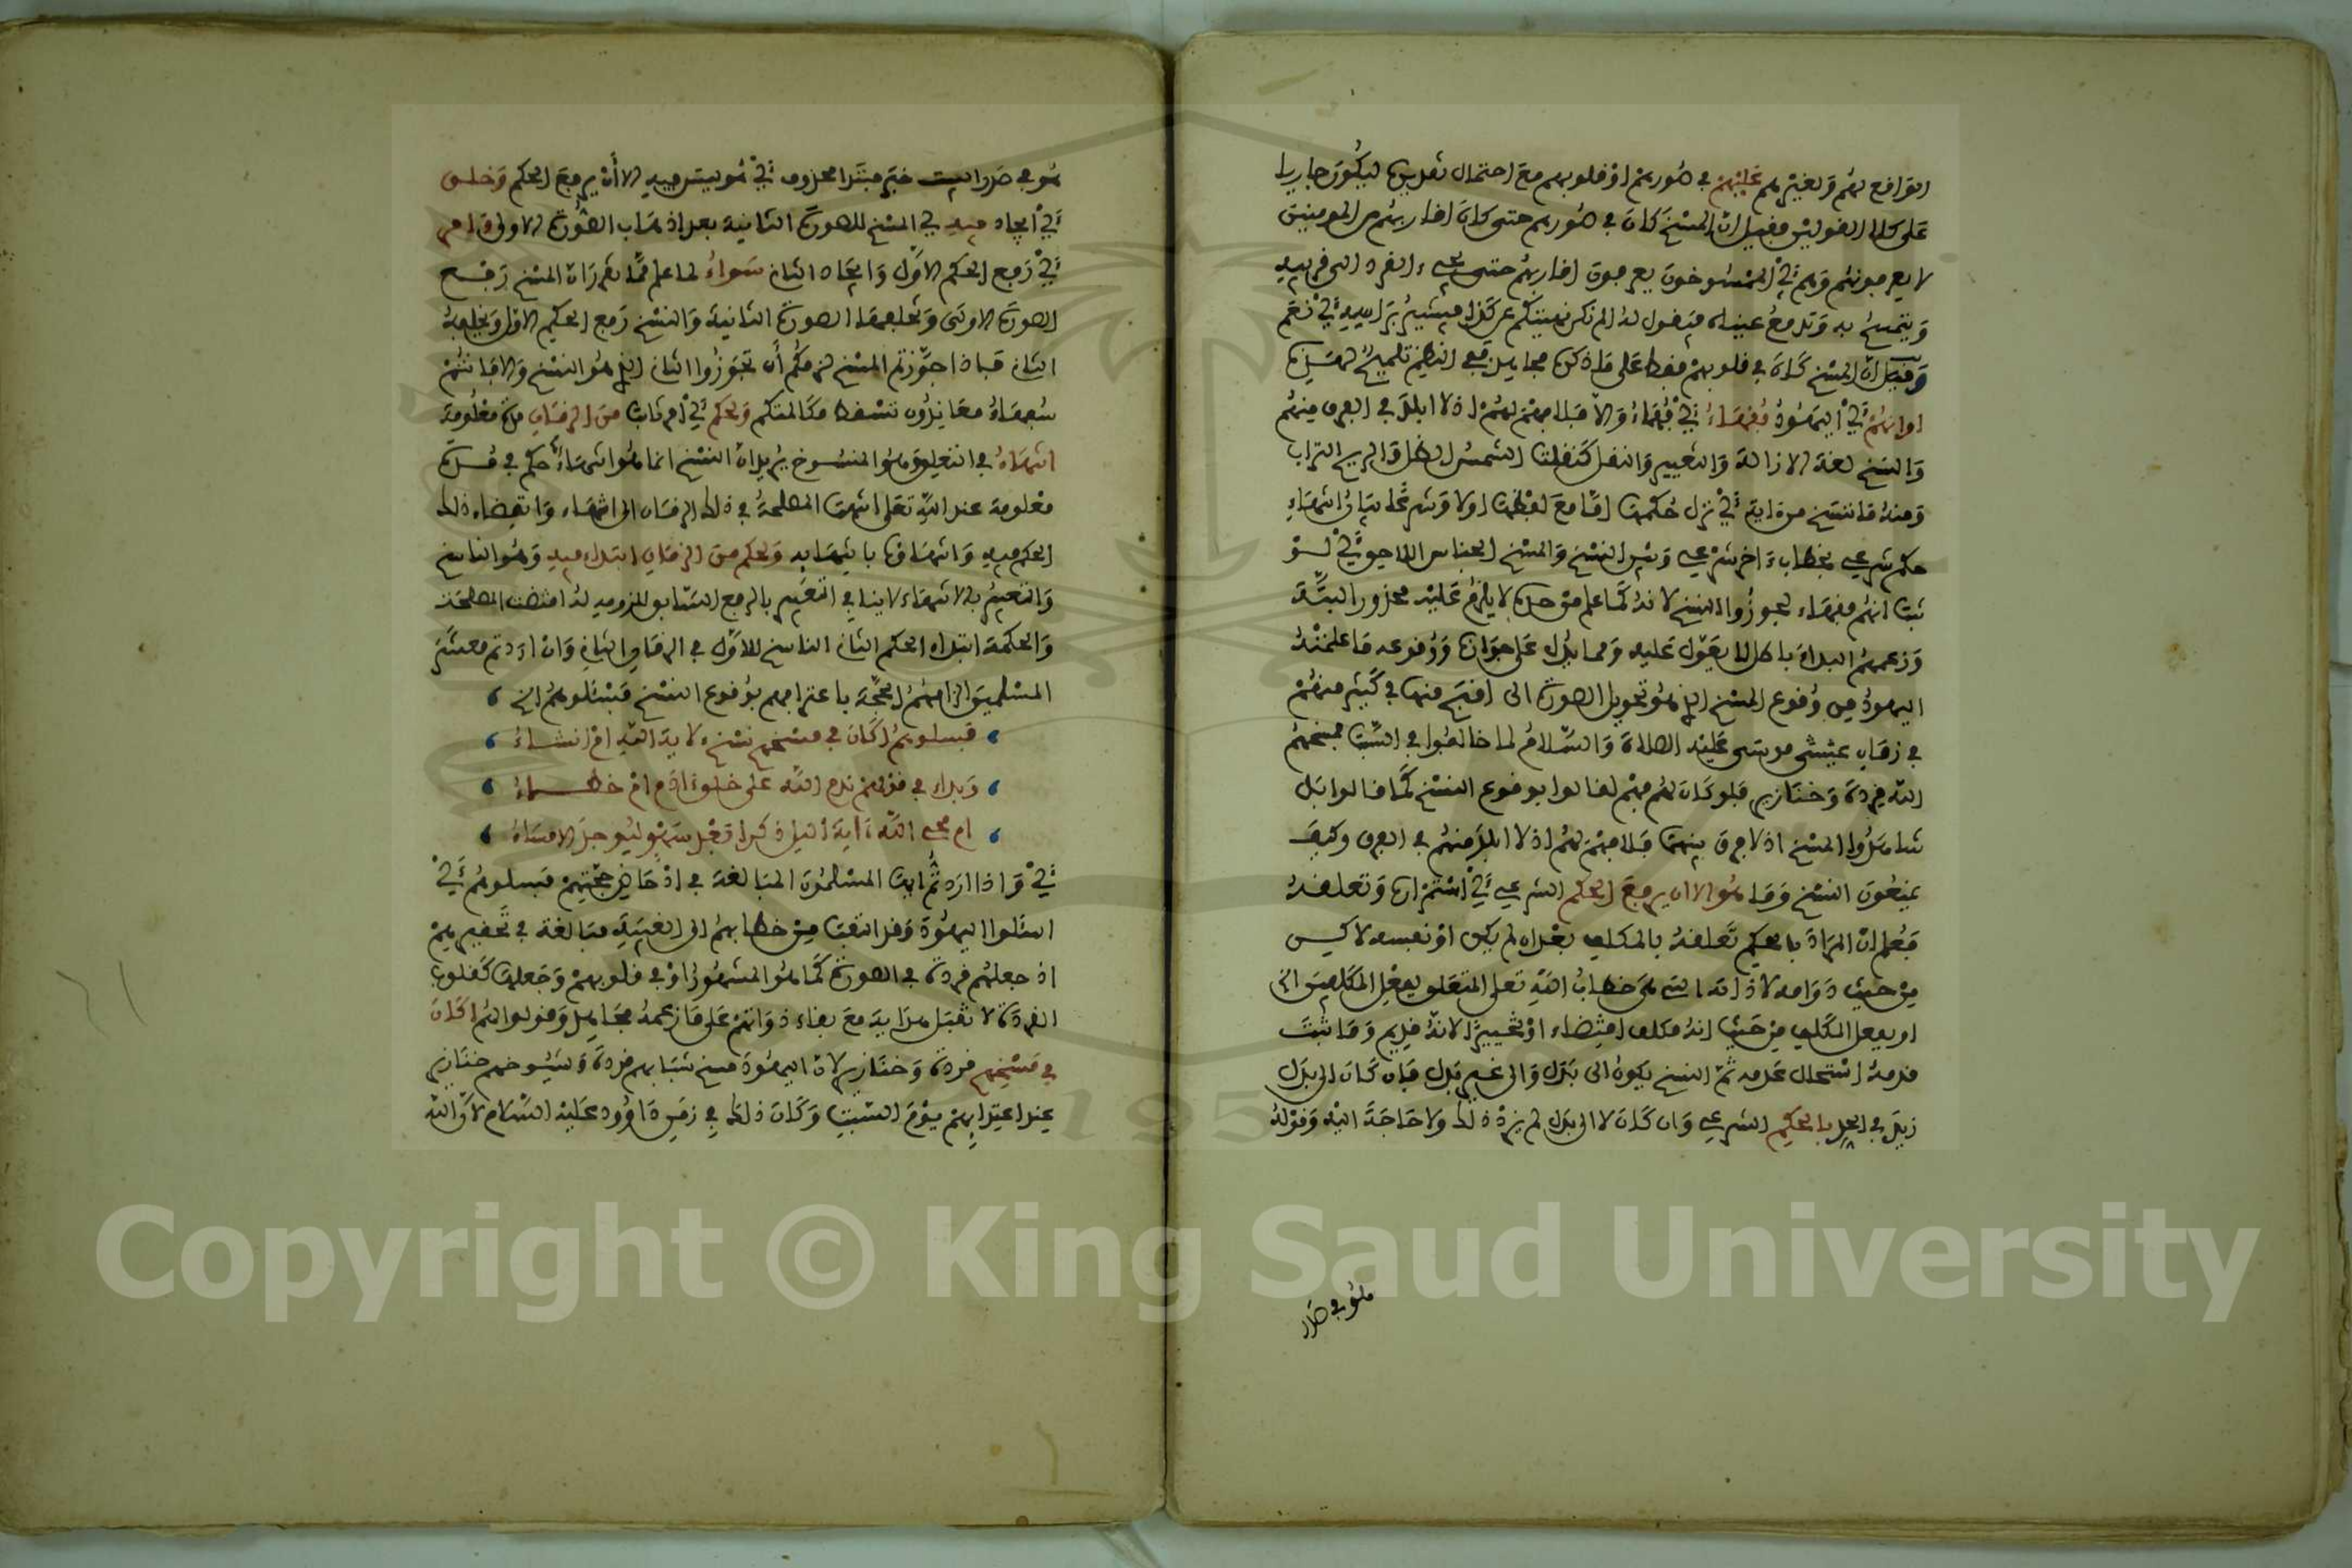 الواقع لهم ولغيرهم عليهم في صورهم او قلوبهم مع احتمال تقديره ليكون جاريا
على كلا القولين فقيل ان المسخ كان في صورهم حتى كان اقاربهم من المومنين
لا يعرفونهم وهم أي الممسوخون يعرفون اقاربهم حتى يجيء القرد الى قريبه
ويتمسح به وتدمع عيناه فيقول له الم نكن نهيتكم عن كذا فيشير براسه أي نعم
وقيل ان المسخ كان في قلوبهم فقط على ما ذكره مجاهد ففي النظم تلميح
او انهم أي اليهود فقهاء أي فهماء والا فلا فهم لهم اذ لا ابلد في العرف منهم
والنسخ لغة الازالة والتغيير والنقل كنقلت الشمس الظل والريح التراب
ومنه ما ننسخ من اية أي نزل حكمها اما مع لفظها اولا وشرعا بيان انتهاء
حكم شرعي بخطاب ءاخر شرعي وبين النسخ والمسخ الجناس اللاحق أي لو
ثبت انهم فقهاء لجوزوا النسخ لانه كما علم من حده لا يلزم عليه محذور البتة
وزعمهم البداء باطل لا يعول عليه ومما يدل على جوازه ووقوعه ما علمته
اليهود من وقوع المسخ الذي هو تحويل الصورة الى اقبح منها في كثير منهم
في زمان موسى عليه الصلاة والسلام لما خالفوا في السبت فمسخهم
الله قردة وخنازير فلو كان لهم فهم لقالوا بوقوع النسخ كما قالوا بل
شاهدوا المسخ اذ لا فرق بينهما فلا فهم لهم اذ لا ابلد منهم في العرف وكيف
يمنعون النسخ وما هو الا ان يرفع الحكم الشرعي أي استمراره وتعلقه
فعلم ان المراد بالحكم تعلقه بالمكلف بعد ان لم يكن او نفسه لاكن
من حيث دوامه لا ذاته التي هي خطاب الله تعلى المتعلق بفعل المكلفين
او بفعل المكلف من حيث انه مكلف اقتضاء او تخييرا لانه قديم وما ثبت
قدمه استحال عدمه ثم النسخ يكون الى بدل والى غير بدل فان كان الى بدل
زيد في الحد بالحكم الشرعي وان كان لا الى بدل لم يزد ذلك ولا حاجة اليه وقوله
هو في صدر
هو في صدر البيت خبر مبتدا محذوف أي هو ليس فيه الا أن يرفع الحكم وخلق
أي ايجاد فيه أي المسخ للصورة الثانية بعد اذهاب الصورة الاولى وامر
أي رفع الحكم الاول وايجاد الثاني سواء لما علم مما تقرر ان المسخ رفع
الصورة الاولى وتخلفها الصورة الثانية والنسخ رفع الحكم الاول ويخلفه
الثاني فباذا جوزتم المسخ لزمكم أن تجوزوا الثاني الذي هو النسخ والا فانتم
سفهاء معاندون تسقط مكالمتكم ولحكم أي امر ثابت من الزمان مدة معلومة
انتهاء في التعليق وهو المنسوخ يريد ان النسخ انما هو انتهاء حكم في مدة
معلومة عند الله تعلى انتهت المصلحة في ذلك الزمان الى انتهاء وانقضاء ذلك
الحكم فيه وانتهاؤه بانتهايه ولحكم من الزمان ابتداء فيه وهو الناسخ
والتعبير بالانتهاء لا ينافي التعبير بالرفع السابق للزومه له اقتضت المصلحة
والحكمة ابتداء الحكم الثاني الناسخ للاول في الزمان الثاني وان اردتم معشر
المسلمين الزامهم الحجة باعترافهم بوقوع النسخ فسئلوهم الخ
فسلوهم اكان في مسخهم نسخ ءلايات الله ام انشاء
وبداء في قولهم ندم الله على خلق ءادم ام خطاء
ام محى الله ءاية الليل ذكرا بعد سهو ليوجد الامساء
أي واذا اردتم ايها المسلمون المبالغة في ادحاض حجتهم فسلوهم أي
اسئلوا اليهود وقد التفت من خطابهم الى الغيبة مبالغة في تحقيرهم
اذ جعلهم قردة في الصورة كما هو المشهور او في قلوبهم وجعلها كقلوب
القردة لا تقبل هداية مع بقاء ذواتهم على ما زعمه مجاهد وقولوا لهم اكان
في مسخهم قردة وخنازير لان اليهود مسخ شبابهم قردة وشيوخهم خنازير
عند اعتدايهم يوم السبت وكان ذلك في زمن داوود عليه السلام لان الله
Copyright © King Saud University